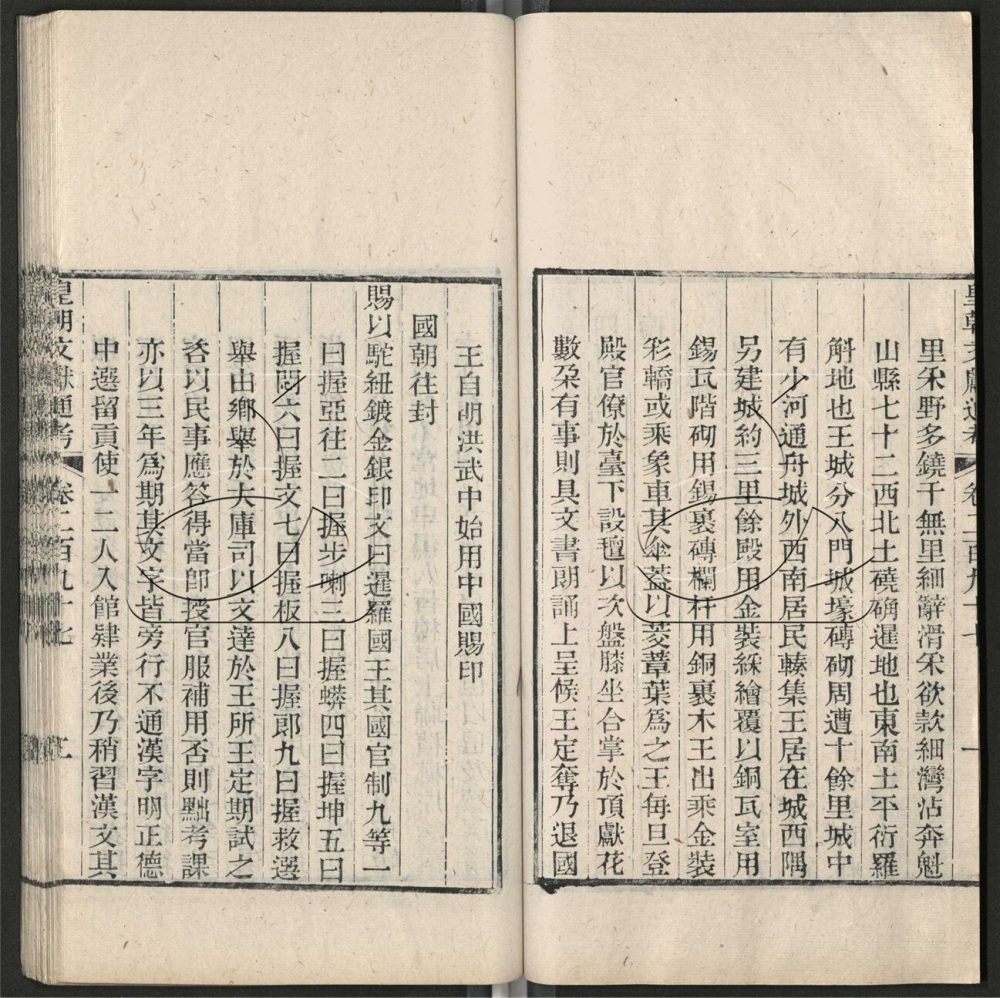 皇朝文獻通考 卷二百九十七
里釆野多鐃千無里細辭滑釆欲款細灣沾奔魁
山縣七十二西北土磽确暹地也東南土平衍羅
斛地也王城分八門城壕磚砌周遭十餘里城中
有小河通舟城外西南居民輳集王居在城西隅
另建城約三里餘殿用金裝綵繪覆以銅瓦室用
錫瓦階砌用錫裹磚欄杆用銅裹木王出乘金裝
彩轎或乘象車其傘蓋以茭葦葉爲之王每旦登
殿官僚於臺下設氊以次盤膝坐合掌於頂獻花
數朶有事則具文書朗誦上呈候王定奪乃退國
王自明洪武中始用中國賜印
國朝往封
賜以駝紐鍍金銀印文曰暹羅國王其國官制九等一
曰握亞往二曰握步喇三曰握蟒四曰握坤五曰
握悶六曰握文七曰握板八曰握郎九曰握救選
舉由鄉舉於大庫司以文達於王所王定期試之
咨以民事應答得當卽授官服補用否則黜考課
亦以三年爲期其文字皆旁行不通漢字明正德
中選留貢使一二人入館肄業後乃稍習漢文其
皇朝文獻通考 卷二百九十七 二